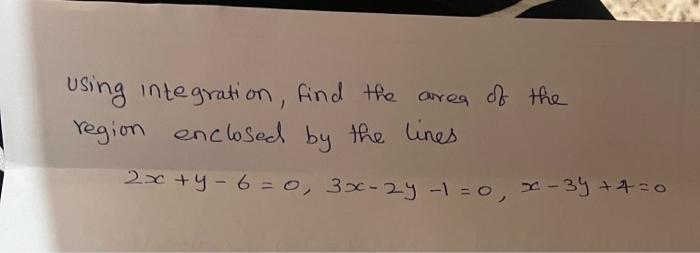 using integration, find the area of the
region enclosed by the lines
2x + y - 6 = 0, 3x - 2y - 1 = 0, x - 3y + 4 = 0